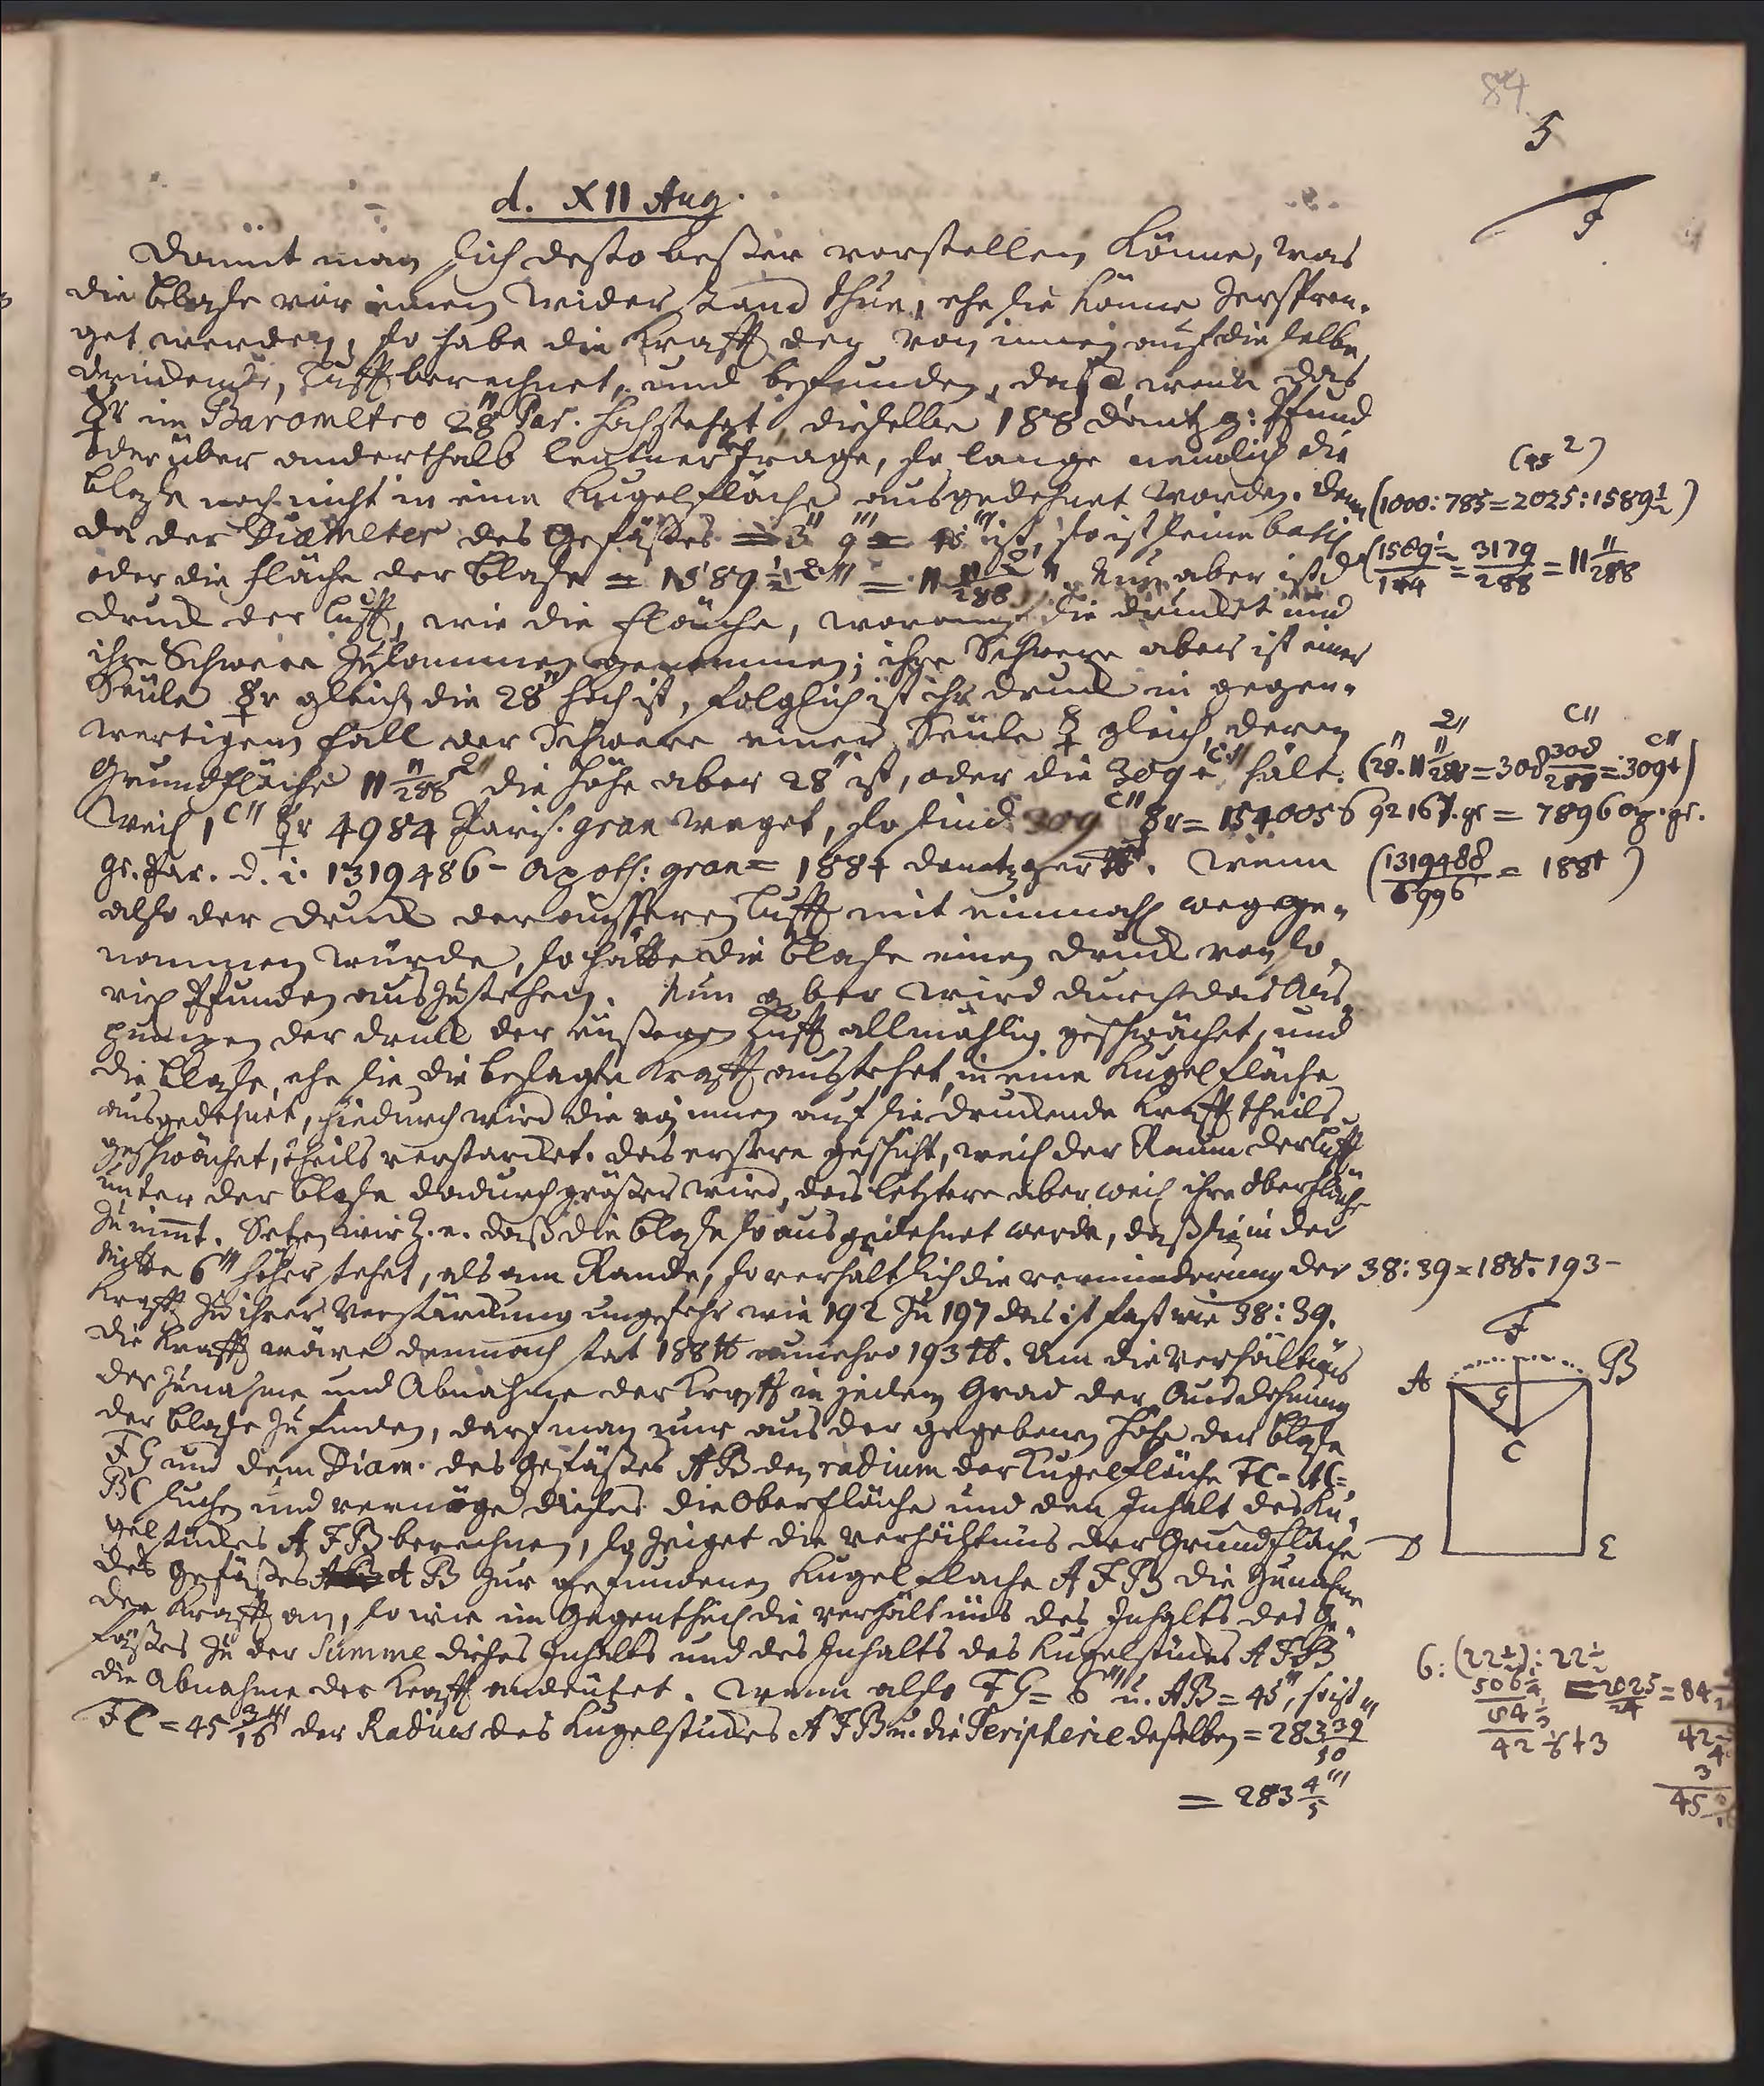 84
5
d. XII Aug.
Damit man sich desto beßer vorstellen könne, was
die Blase vor einen Widerstand thue, ehe sie könne zerspren-
get werden, so habe die Krafft der von innen auf dieselbe
drückende, Lufft berechnet, und befunden, daß, wenn das
☿r im Barometro 28" Par. hoch stehet, dieselbe 188 Dantzg: Pfund
oder über anderthalb Centner trage, so lange nemlich die
Blase noch nicht in eine Kugelfläche ausgedehnet worden. Denn
(45²)
(1000:785=2025:1589½)
da der Diameter des Gefäßes = 3" 9''' = 45''' ist, so ist seine basis
oder die Fläche der Blase = 1589½ ²''' = 11 11/288 ²". Nun aber ist d
(1589½/144 = 3179/288 = 11 11/288
Druck der Lufft, wie die Fläche, worauf sie drücket und
ihre Schwere zusammen genommen; ihre Schwere aber ist einer
Seüle ☿r gleich die 28" hoch ist, folglich ist ihr Druck in gegen-
wertigem Fall der Schwere einer Seüle ☿ gleich, deren
Grundfläche 11 11/288 ²" die Höhe aber 28" ist, oder die 309+ c" hält.
(28". 11 11/288 ²" = 308 308/288 c" = 309+ c")
Weil 1 c" ☿r 4984 Paris. gran wieget, so sind 309 c" ☿r = 1540056
9216 P. gr = 7896 ap. gr.
gr. Par. d. i. 1319486- Apoth: gran = 188+ Dantzger ℔. Wenn
(1319488/6996 = 188+ )
also der Druck der äussern Lufft mit einmahl wegge-
nommen würde, so hätte die Blase einen Druck von so
viel Pfunden auszustehen. Nun aber wird durch das Aus-
pumpen der Druck der äußeren Lufft allmählig geschwächet, und
die Blase, ehe sie die besagte Krafft ausstehet, in eine Kugelfläche
ausgedehnet, hiedurch wird die von innen auf sie drückende Krafft theils
geschwächet, theils verstärcket. Das erstere geschicht, weil der Raum der Lufft
unter der Blase dadurch größer wird, das letztere aber weil ihre Oberfläche
zunimt. Setzen wir z. e. daß die Blase so ausgedehnet werde, daß sie in der
Mitte 6''' höher stehet, als am Rande, so verhält sich die Verminderung der
38:39=188:193-
Krafft zu ihrer Verstärckung ungefehr wie 192 zu 197 das ist fast wie 38:39.
Die Krafft wäre demnach stat 188 ℔ nunmehro 193 ℔. Um die Verhältnis
der Zunahme und Abnahme der Krafft in jedem Grad der Ausdehnung
der Blase zu finden, darf man nur aus der gegebenen Höhe der Blase
FG und dem Diam. des Gefäßes AB den radium der Kugelfläche FC=AC=
BC suchen und vermöge dieses die Oberfläche und den Inhalt des Ku-
gelstückes AFB berechnen, so zeiget die Verhältnis der Grundfläche
des Gefäßes AB zur gefundenen Kugelfläche AFB die Zunahme
der Krafft an, so wie im Gegentheil die Verhältnis des Inhalts des Ge-
fäßes zu der Summe dieses Inhalts und des Inhalts des Kugelstückes AFB
die Abnahme der Krafft andeutet. Wenn also FG = 6''' u. AB = 45''', so ist
FC = 45 3/16''' der Radius des Kugelstückes AFB u. die Peripherie deßelben = 283 39/50'''
= 283 4/5'''
F
A
B
G
C
D
E
6:(22½):22½
506¼
=2025/24=84
84⅓
42⅙+3
42
3
45